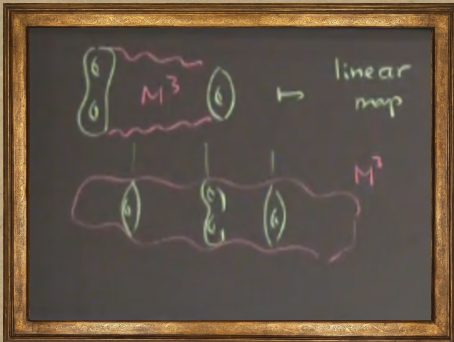 M³ ↦ linear
map
M³